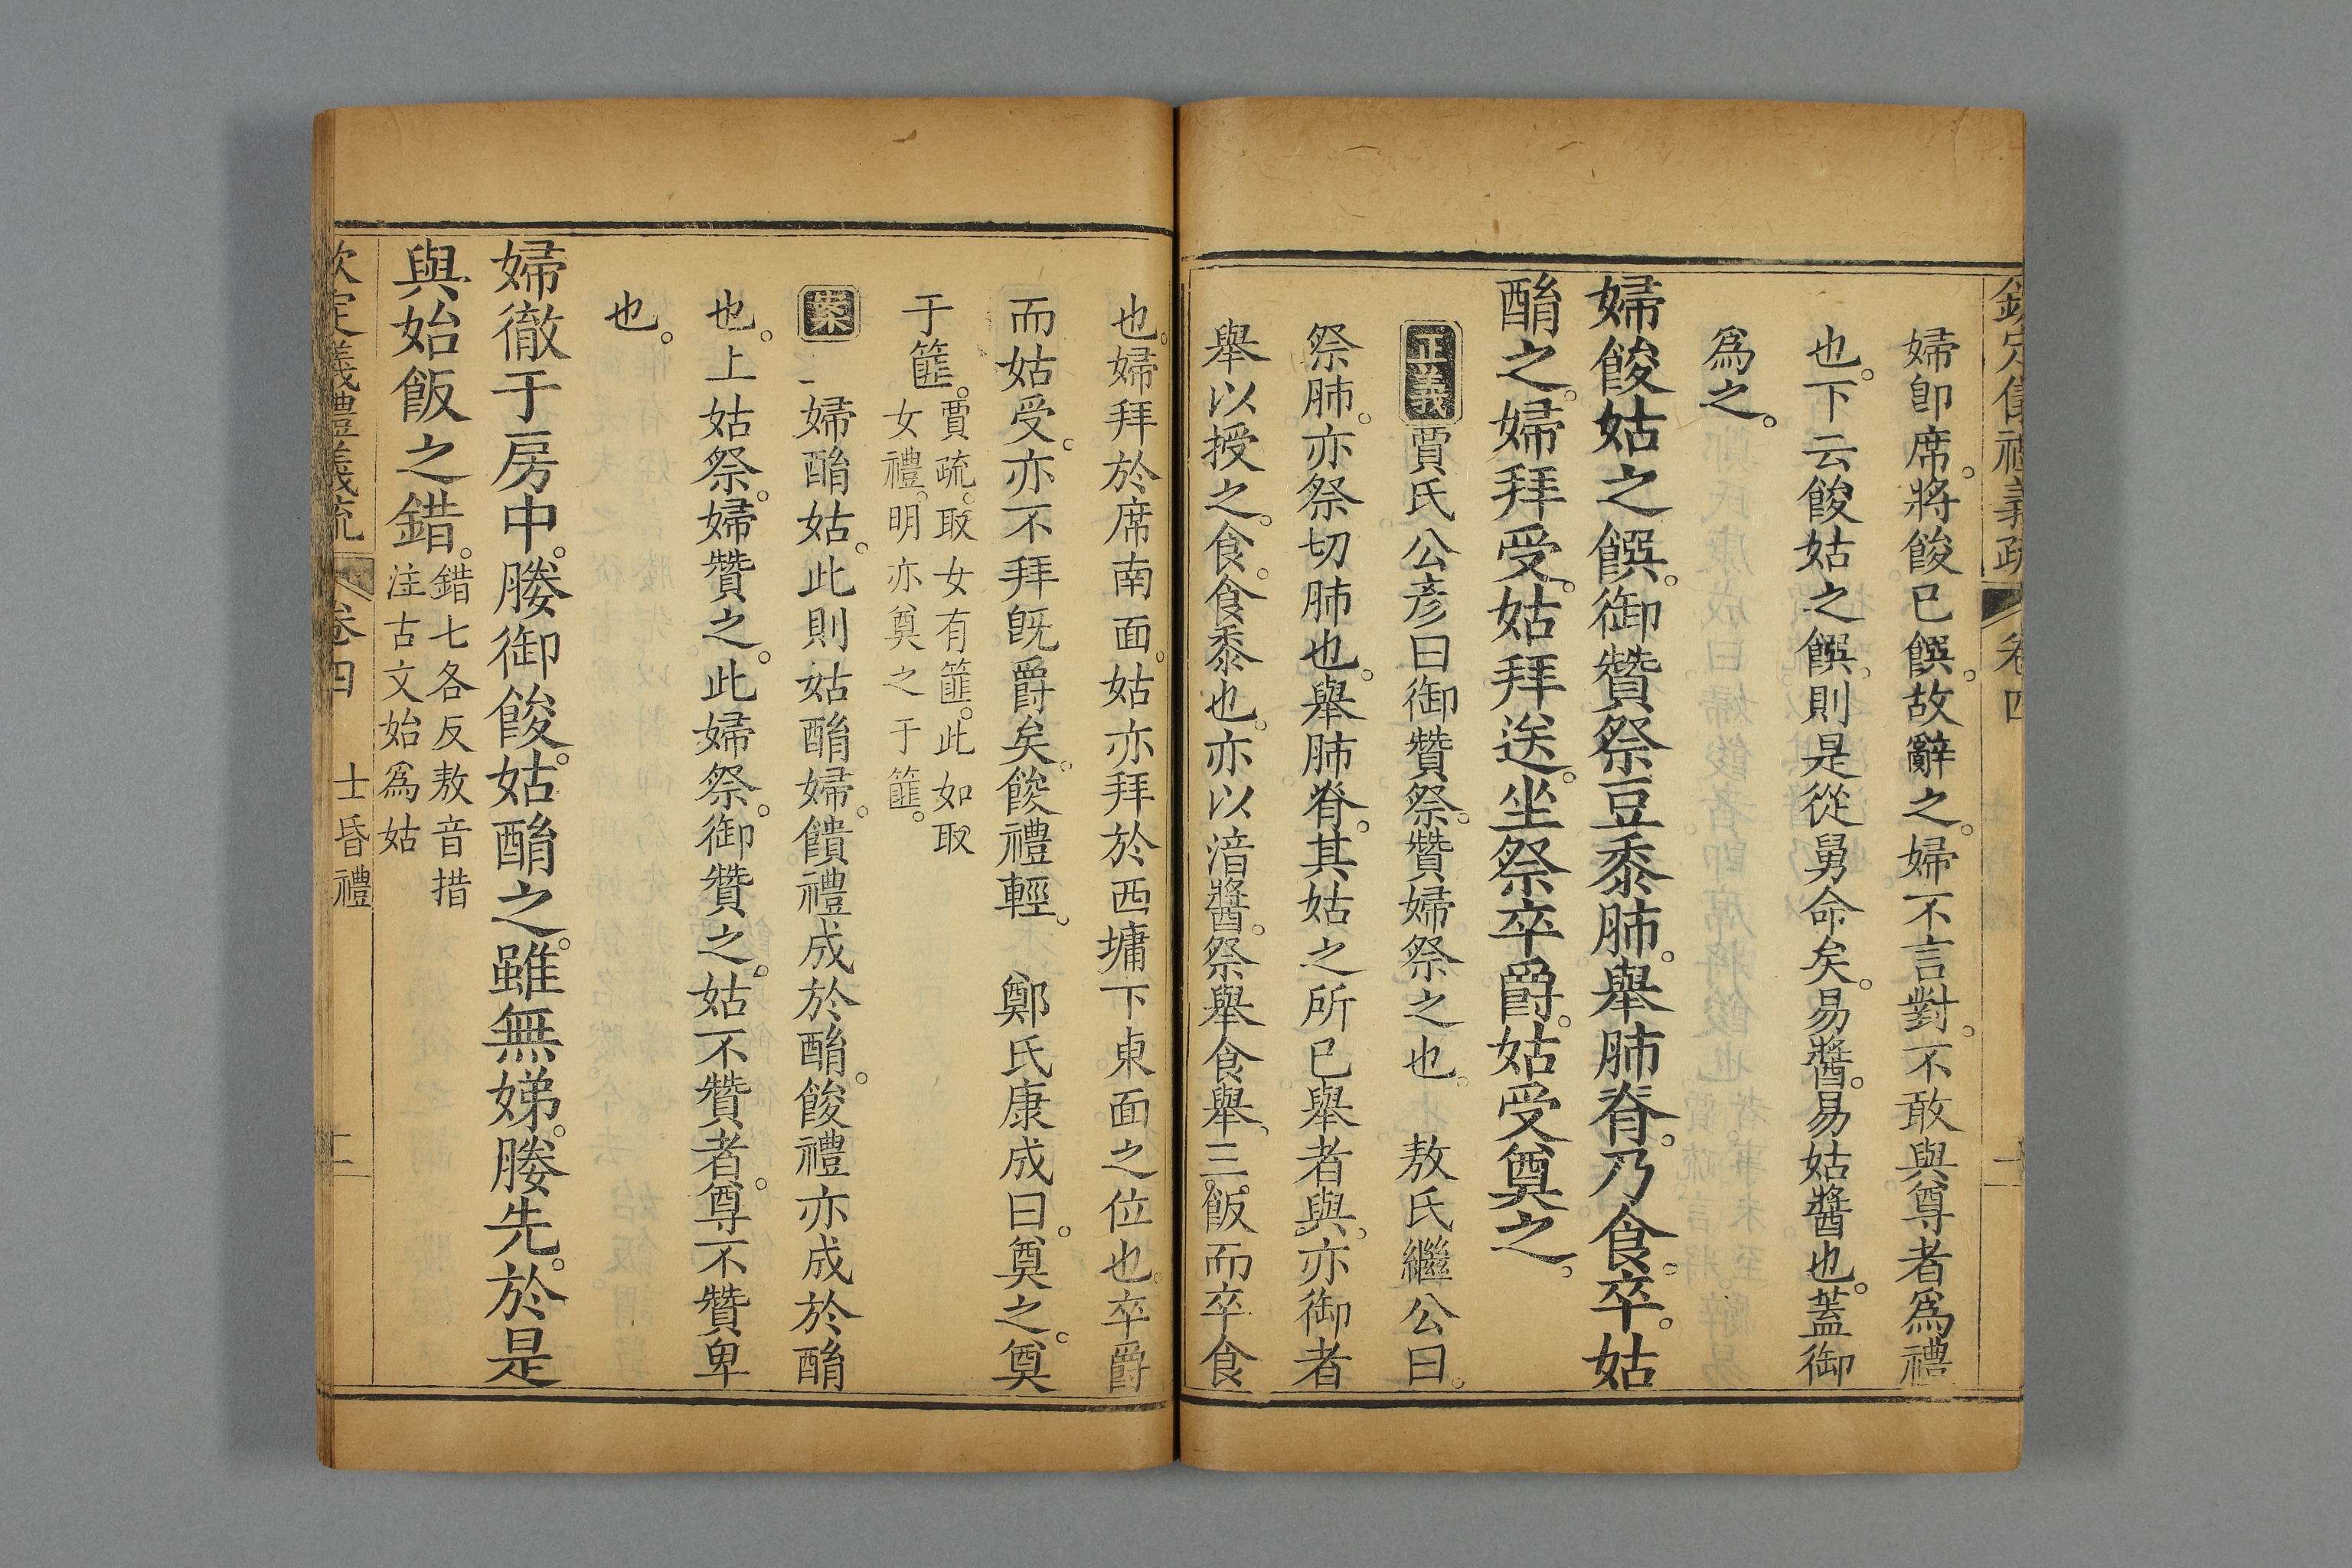 欽定儀禮義疏 卷四
婦卽席。將餕已饌。故辭之。婦不言對。不敢與尊者爲禮
也。下云餕姑之饌。則是從舅命矣。易醬。易姑醬也。蓋御
爲之。
婦餕姑之饌。御贊祭豆黍肺。舉肺脊。乃食。卒。姑
酳之。婦拜受。姑拜送。坐祭卒爵。姑受奠之。
正義 賈氏公彥曰御贊祭。贊婦祭之也。 敖氏繼公曰。
祭肺。亦祭切肺也。舉肺脊。其姑之所已舉者與。亦御者
舉以授之。食。食黍也。亦以湆醬。祭舉食舉、三飯而卒食
也。婦拜於席南面。姑亦拜於西墉下東面之位也。卒爵
而姑受。亦不拜旣爵矣。餕禮輕。 鄭氏康成曰。奠之。奠
于篚。賈疏。取女有篚。此如取
女禮。明亦奠之于篚。
案 婦酳姑。此則姑酳婦。饋禮成於酳。餕禮亦成於酳
也。上姑祭。婦贊之。此婦祭。御贊之。姑不贊者。尊不贊卑
也。
婦徹于房中。媵御餕。姑酳之。雖無娣。媵先。於是
與始飯之錯。錯七各反敖音措
注古文始爲姑
欽定義禮義疏 卷四 士昏禮